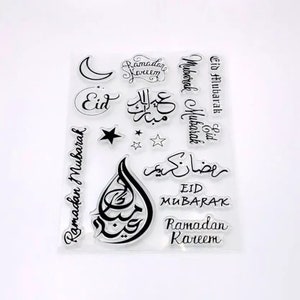 Ramadan
Kareem
Eid Mubarak
Eid
Mubarak
عيد
مبارك
Eid
Mubarak
Ramadan Mubarak
رمضان كريم
عيد مبارك
EID
MUBARAK
Ramadan
Kareem